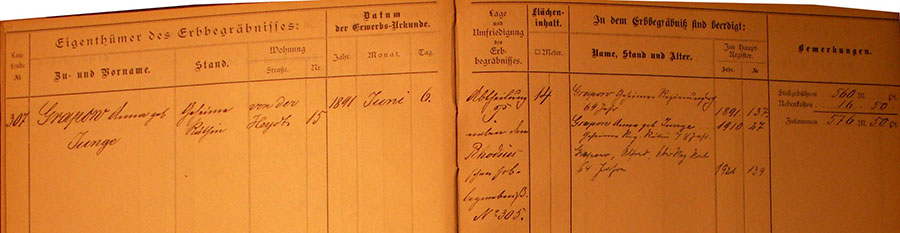 Eigenthümer des Erbbegräbnisses:
Datum der Erwerbs-Urkunde.
Laufende №
Zu- und Vorname.
Stand.
Wohnung
Straße.
Nr.
Jahr.
Monat.
Tag.
307
Grapow Anna geb
Junge
Geheime
Räthin
von der
Heydt
15
1891
Juni
6.
Lage und Umfriedigung des Erbbegräbnisses.
Flächeninhalt.
□ Meter.
In dem Erbbegräbniß sind beerdigt:
Name, Stand und Alter.
Im Haupt-Register.
Jahr.
№
Bemerkungen.
Abtheilung
neben dem
Rhodius
schen Erb-
begräbniß.
No 305.
14
Grapow Geheimer Regierungs
69 Jahr
1891
137
Grapow Anna geb Junge
Geheime Reg. Räthin 78 Jahr.
1910
47
Grapow, Alfred,
64 Jahre
1921
139
Stellgebühren 560 M.
Nebenkosten 16 50
Zusammen 576 M 50